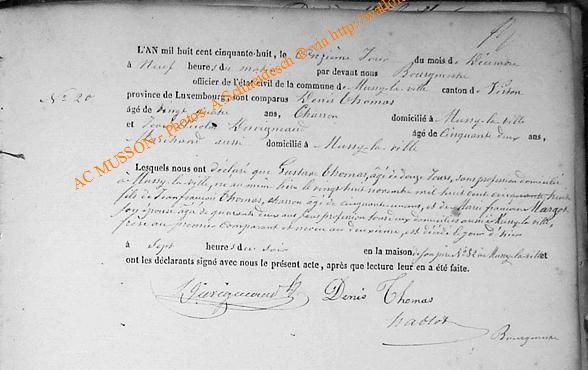 L'AN mil huit cent cinquante-huit, le onzième Jour du mois de Décembre
à Neuf heures du matin par devant nous Bourgmestre
officier de l'état civil de la commune de Mussy-la-ville canton de Virton
No. 20
province de Luxembourg, sont comparus Denis Thomas
âgé de vingt quatre ans, Charron domicilié à Mussy-la-ville
et Jean Nicolas âgé de Cinquante deux ans,
Marchand aussi domicilié à Mussy-la-ville
Lesquels nous ont déclaré que Gustave Thomas, agé de douze Jours, sans profession domicilié
à Mussy-la-ville, né au même lieu le vingt huit novembre mil huit cent cinquante huit
fils de Jean françois Thomas, charron agé de cinquante un ans, et de Marie françoise Margot
son épouse agée de quarante deux ans sans profession tous deux domiciliés aussi à Mussy-la-ville,
frère au premier comparant et neveu au deuxième, est décédé le jour d'hier
à Sept heures du soir en la maison de son père No. 82 à Mussy-la-ville et
ont les déclarants signé avec nous le présent acte, après que lecture leur en a été faite.
Denis Thomas
Bourgmestre
AC MUSSON - Photos: A.Schneidesch © via http://wallon